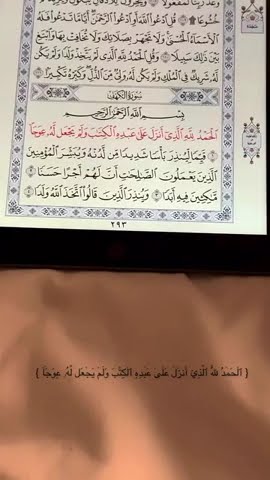 خُشُوعًا ۩ ١٠٩ قُلِ ادْعُوا اللَّهَ أَوِ ادْعُوا الرَّحْمَٰنَ أَيًّا مَا تَدْعُوا فَلَهُ
الْأَسْمَاءُ الْحُسْنَىٰ وَلَا تَجْهَرْ بِصَلَاتِكَ وَلَا تُخَافِتْ بِهَا وَابْتَغِ
بَيْنَ ذَٰلِكَ سَبِيلًا ١١٠ وَقُلِ الْحَمْدُ لِلَّهِ الَّذِي لَمْ يَتَّخِذْ وَلَدًا وَلَمْ يَكُنْ لَهُ
شَرِيكٌ فِي الْمُلْكِ وَلَمْ يَكُنْ لَهُ وَلِيٌّ مِنَ الذُّلِّ وَكَبِّرْهُ تَكْبِيرًا ١١١
سُورَةُ الْكَهْفِ
بِسْمِ اللَّهِ الرَّحْمَٰنِ الرَّحِيمِ
الْحَمْدُ لِلَّهِ الَّذِي أَنْزَلَ عَلَىٰ عَبْدِهِ الْكِتَٰبَ وَلَمْ يَجْعَلْ لَهُ عِوَجًا
١ قَيِّمًا لِيُنْذِرَ بَأْسًا شَدِيدًا مِنْ لَدُنْهُ وَيُبَشِّرَ الْمُؤْمِنِينَ
الَّذِينَ يَعْمَلُونَ الصَّٰلِحَٰتِ أَنَّ لَهُمْ أَجْرًا حَسَنًا
٢ مَٰكِثِينَ فِيهِ أَبَدًا ٣ وَيُنْذِرَ الَّذِينَ قَالُوا اتَّخَذَ اللَّهُ وَلَدًا ٤
٢٩٣
﴿ ٱلْحَمْدُ لِلَّهِ ٱلَّذِيٓ أَنزَلَ عَلَىٰ عَبْدِهِ ٱلْكِتَٰبَ وَلَمْ يَجْعَل لَّهُۥ عِوَجَا ﴾